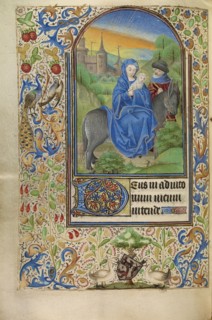 Eus in adiuto
rium meum
intende